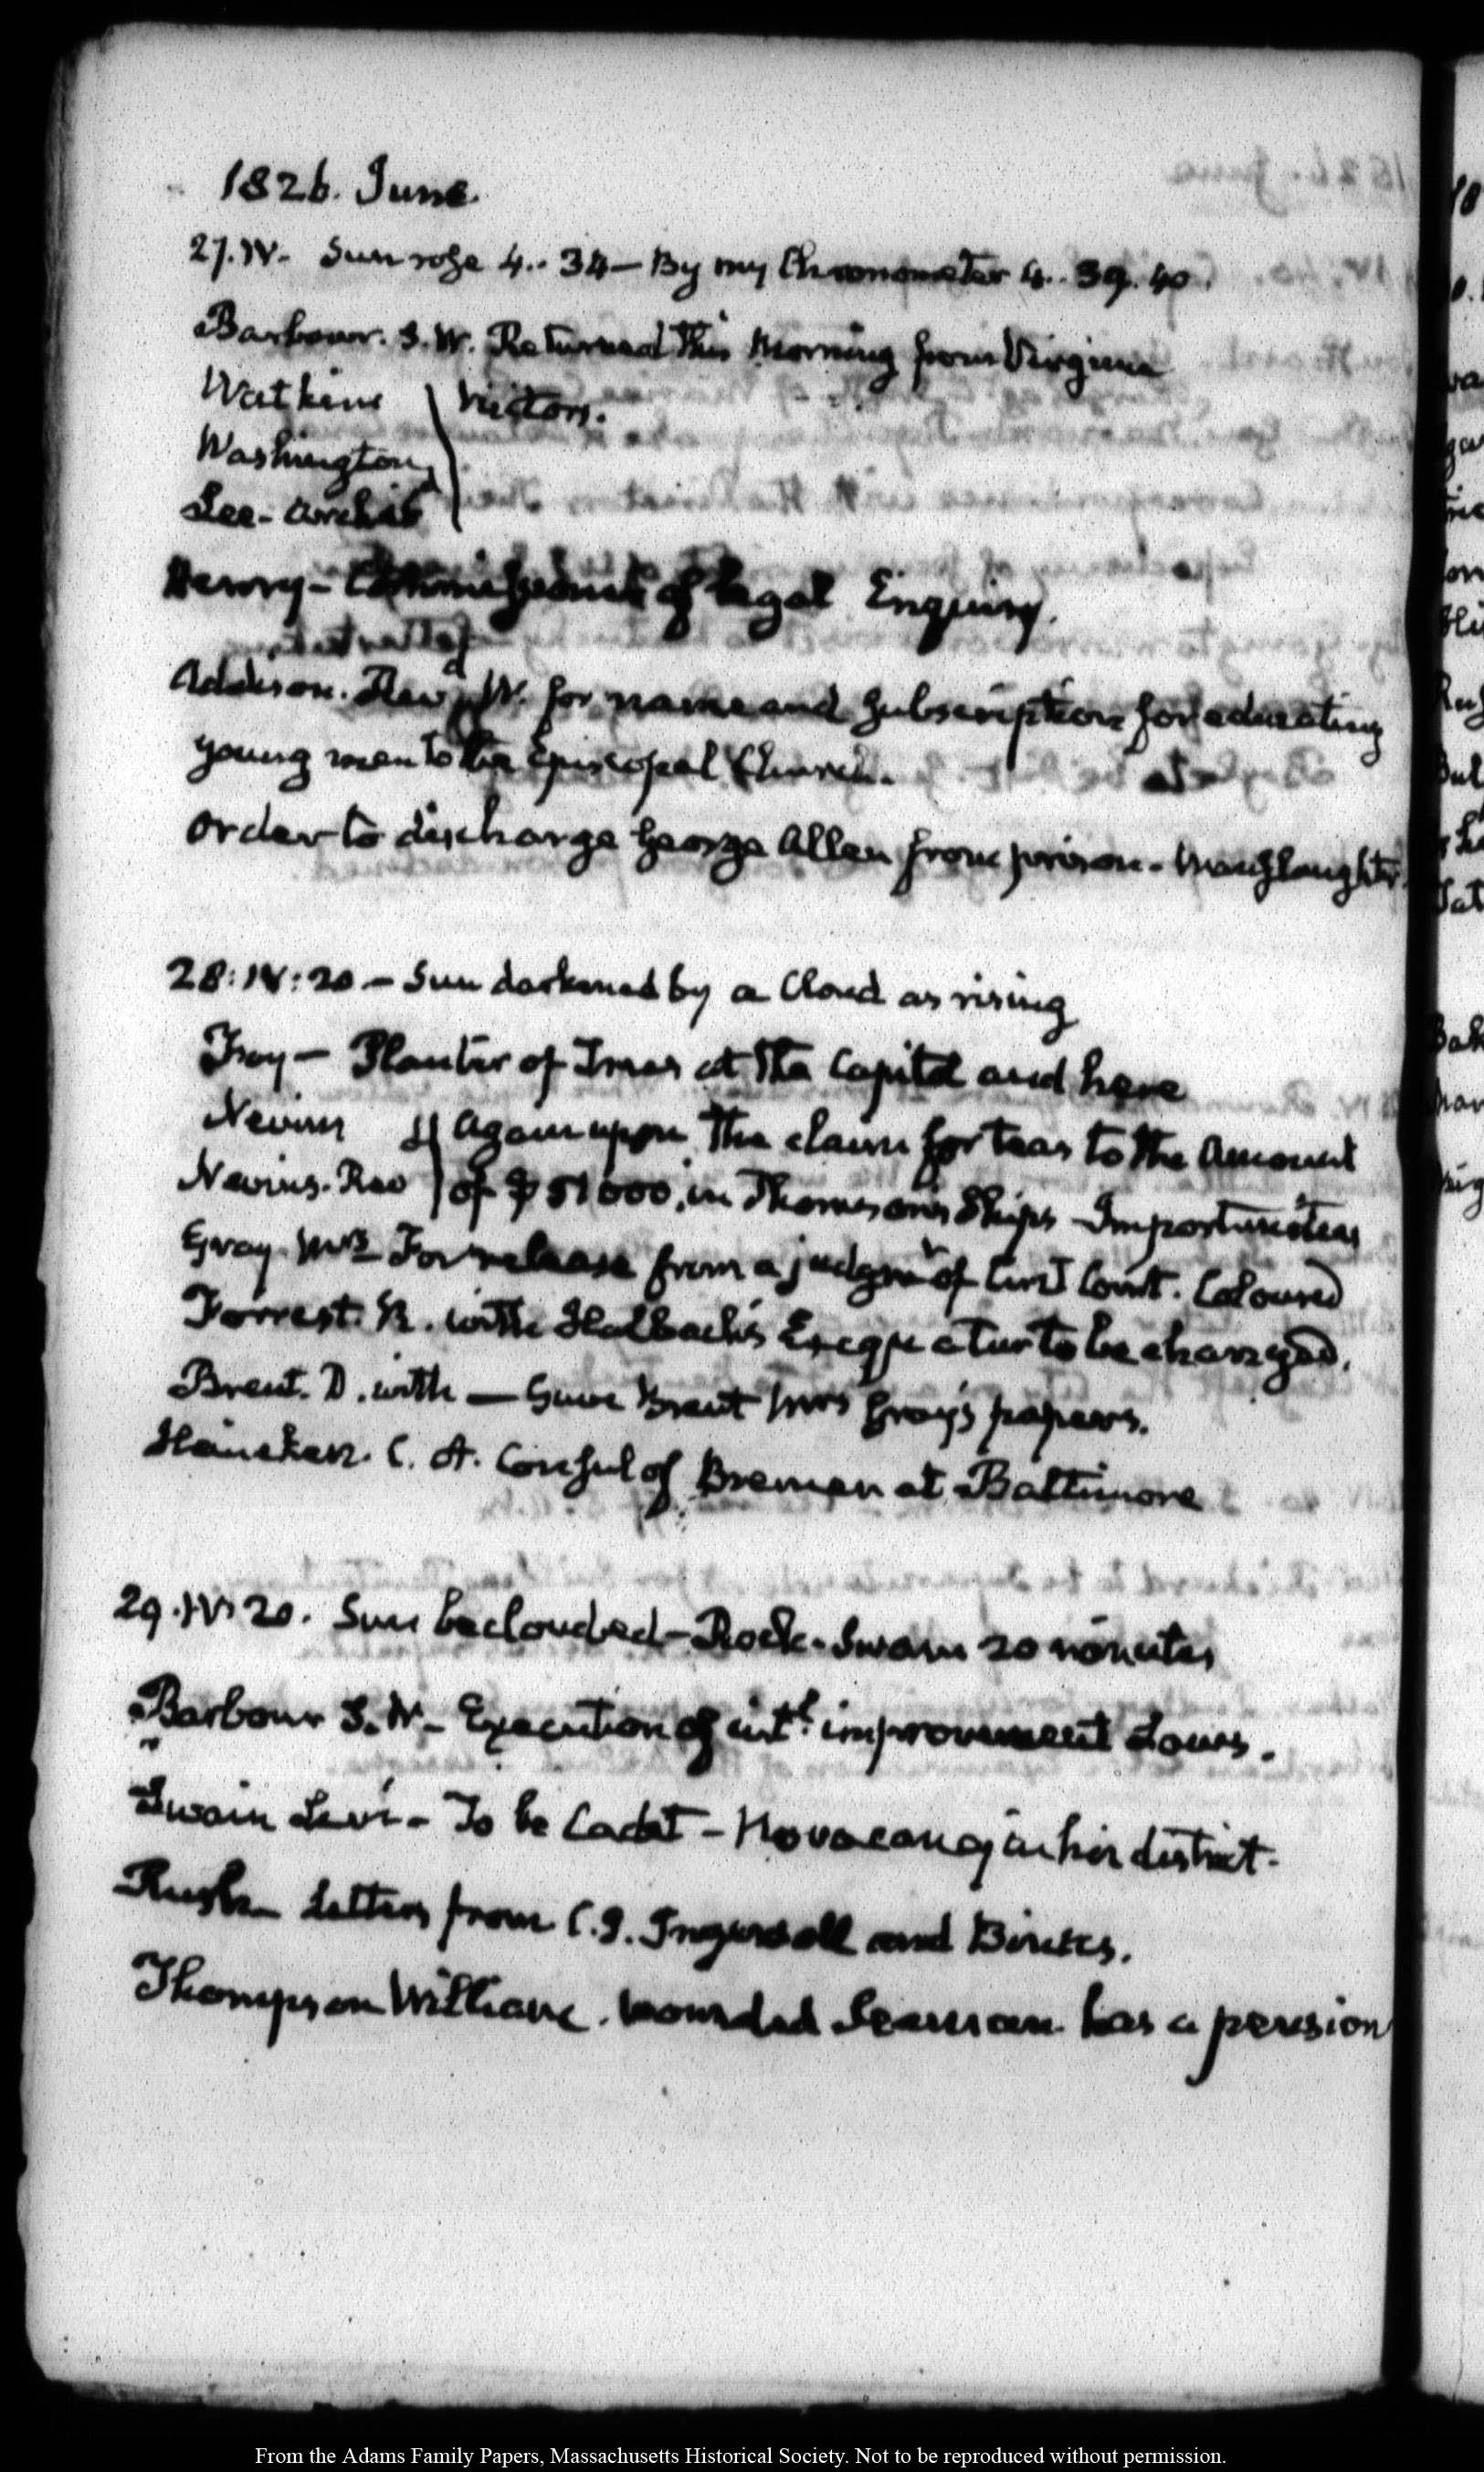 1826. June.
27. IV. Sun rose 4..34 — By my Chronometer 4..39.40.
Barbour. S. W. Returned this Morning from Virginia
Watkins } Visitors.
Washington
Lee- Archib
Henry - of legal Enquiry.
Addison. Revd. W. for name and subscription for educating
young men to the Episcopal Church.
Order to discharge George Allen from prison - Manslaughter.
28: IV: 20. - Sun darkened by a Cloud as rising
Foy — Planter of Trees at the Capitol and here
Nevins } again upon the claim for teas to the Amount
Nevins. Rus } of $51000, in Thomson's Ships -
Gray. Mrs For release from a judgmt of Circt Court. Coloured
Forrest. R. with Halbach's Exequatur to be changed.
Brent. D. with — Gave Brent Mrs Gray's papers.
Heineken. C. A. Consul of Bremen at Baltimore
29. IV: 20. Sun beclouded - Rock. Swam 20 minutes
Barbour S. W. - Execution of intl. improvement Laws.
Swain Levi - To be Cadet - No vacancy in his district.
Rush - Letters from C. J. Ingersoll and Binns.
Thompson William. Wounded Seaman has a pension
From the Adams Family Papers, Massachusetts Historical Society. Not to be reproduced without permission.